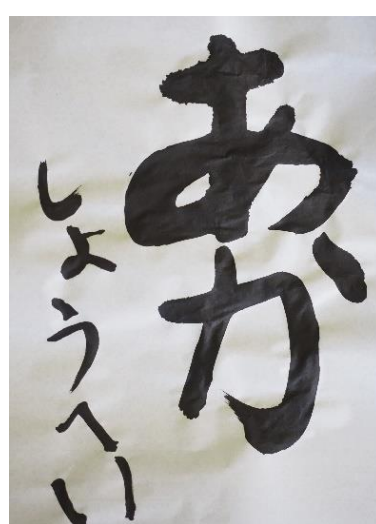 あか
しょうへい